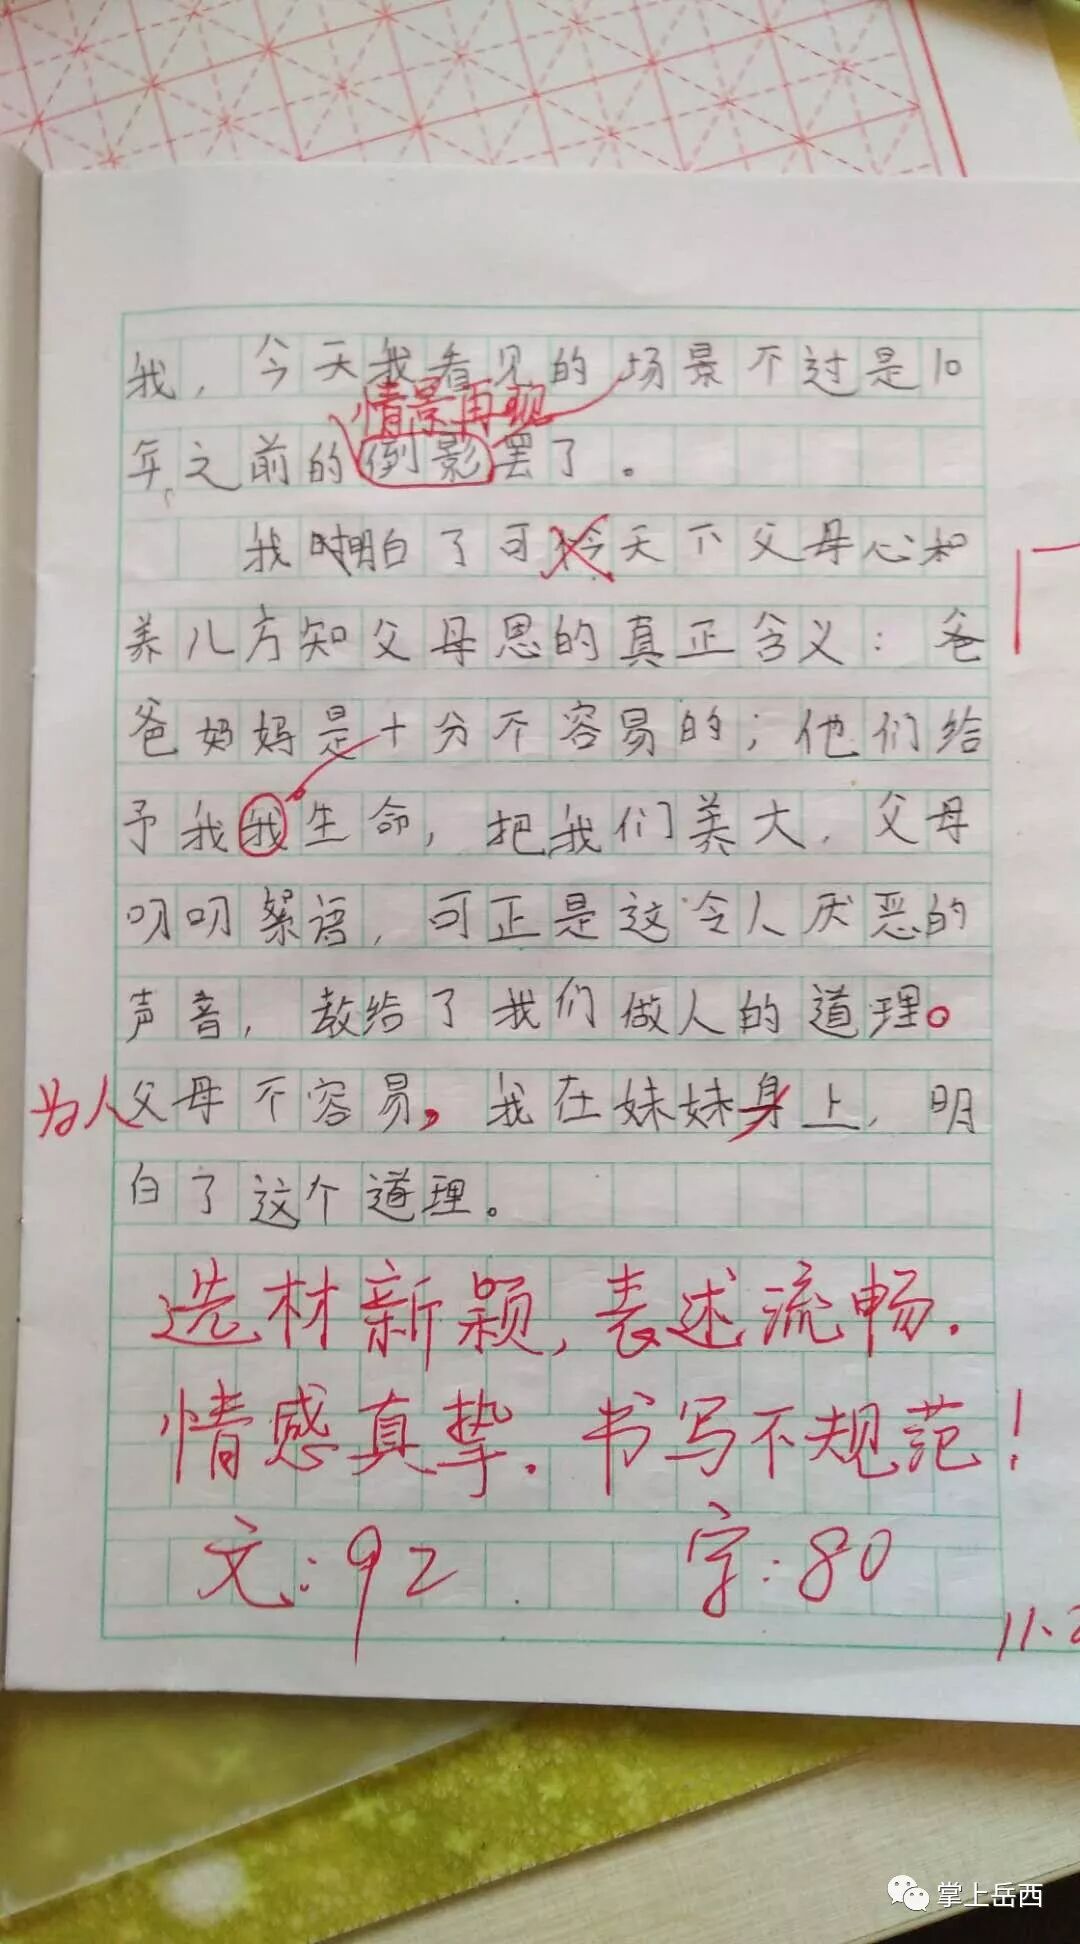 我，今天我看见的场景不过是10
情景再现
年之前的倒影罢了。
我明白了可今天下父母心和
养儿方知父母恩的真正含义：爸
爸妈妈是十分不容易的；他们给
予我我生命，把我们养大，父母
叨叨絮语，可正是这令人厌恶的
声音，教给了我们做人的道理。
为人父母不容易，我在妹妹身上，明
白了这个道理。
选材新颖，表述流畅.
情感真挚.书写不规范！
文：92 字：80
掌上岳西